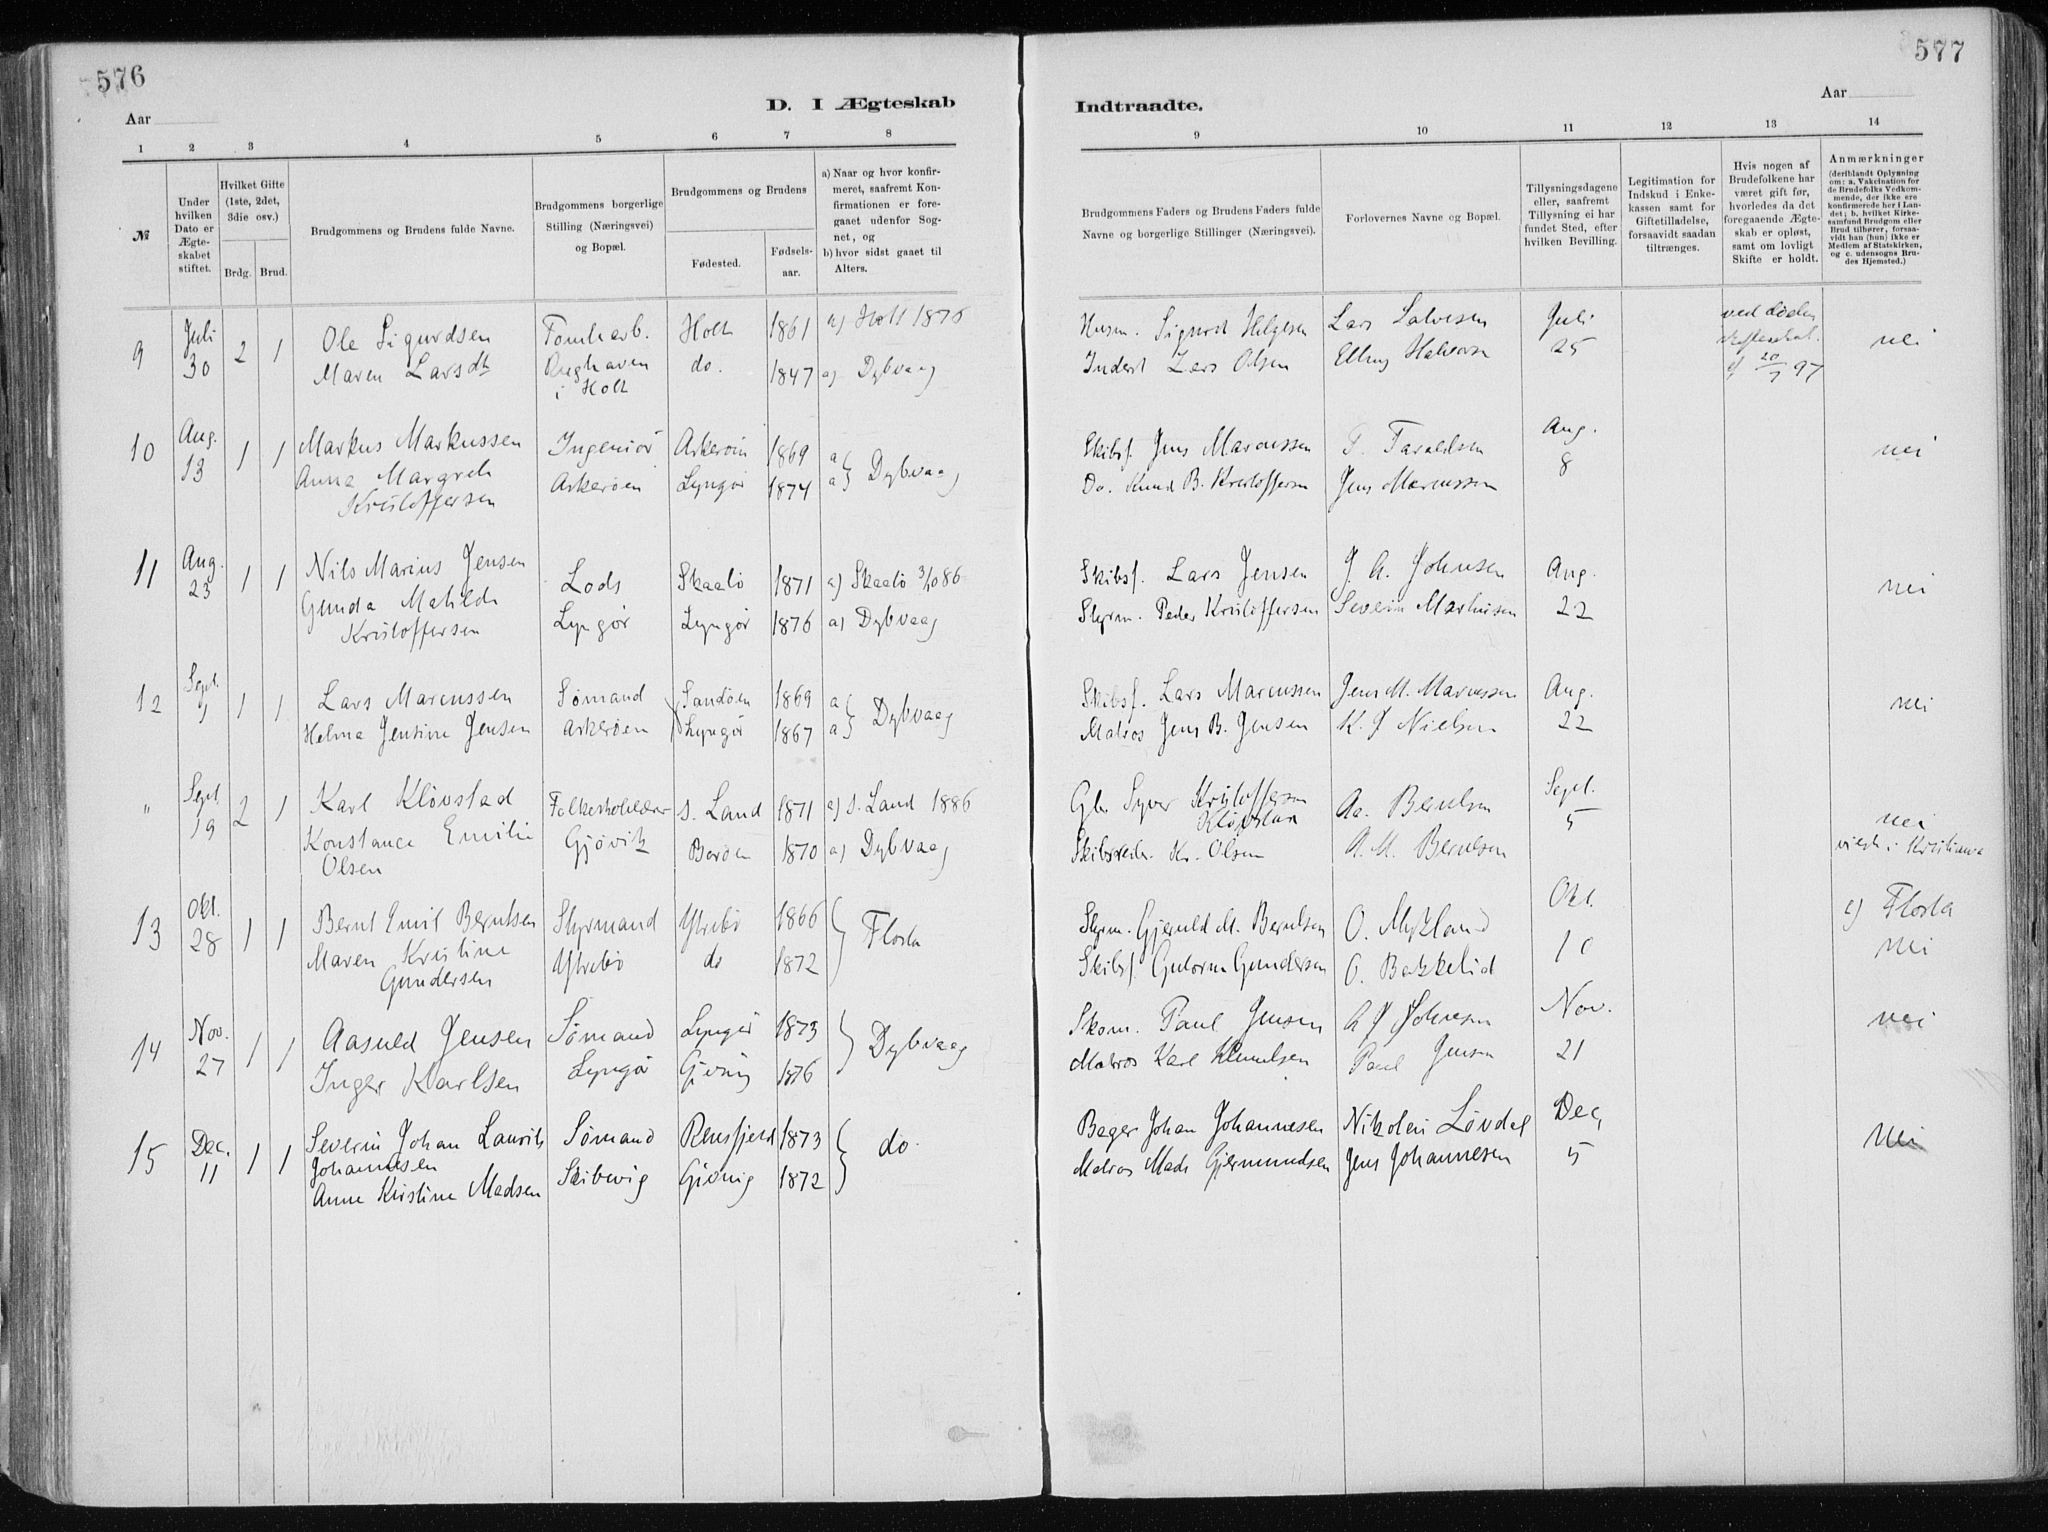 576
Aar
D. I Ægteskab
1 2 3 4 5 6 7 8
№
Under hvilken Dato er Ægteskabet stiftet.
Hvilket Gifte (1ste, 2det, 3die osv.)
Brdg. Brud.
Brudgommens og Brudens fulde Navne.
Brudgommens borgerlige Stilling (Næringsvei) og Bopæl.
Brudgommens og Brudens
Fødested.
Fødselsaar.
a) Naar og hvor konfirmeret, saafremt Konfirmationen er foregaaet udenfor Sognet, og
b) hvor sidst gaaet til Alters.
9 Juli 30 2 1 Ole Sigurdsen Holt 1861 a) Holt 1876
Maren Larsdt i Holt do. 1847 a) Dybvaag
10 Aug. 13 1 1 Markus Markussen Ingeniør Askerøen 1869 a
Anna Margrete Askerøen Lyngør 1874 a Dybvaag
Kristoffersen
11 Aug. 23 1 1 Nils Marius Jensen Lods Skaatø 1871 a) Skaatø 3/10 86
Gunda Mathilde Lyngør Lyngør 1876 a) Dybvaag
Kristoffersen
12 Sept. 1 1 1 Lars Marcussen Sømand Sandøen 1869 a
Helma Jensine Jensen Askerøen Lyngør 1867 a Dybvaag
" Sept. 19 2 1 Karl Kløvstad Folkeskolelærer S. Land 1871 a) S. Land 1886
Konstance Emilie Gjøvik Borøen 1870 a) Dybvaag
Olsen
13 Okt. 28 1 1 Bernt Emil Berntsen Styrmand Ytrebø 1866
Maren Kristine Ytrebø do 1872 Flosta
Gundersen
14 Nov. 27 1 1 Aasuld Jensen Sømand Lyngør 1873
Inger Karlsen Lyngør Gjeving 1876 Dybvaag
15 Dec. 11 1 1 Severin Johan Laurits Sømand 1873
Johannesen do.
Anne Kirstine Madsen Skibvig 1872
577
Aar
Indtraadte.
9 10 11 12 13 14
Brudgommens Faders og Brudens Faders fulde Navne og borgerlige Stillinger (Næringsvei).
Forlovernes Navne og Bopæl.
Tillysningsdagene eller, saafremt Tillysning ei har fundet Sted, efter hvilken Bevilling.
Legitimation for Indskud i Enkekassen samt for Giftetilladelse, forsaavidt saadan tiltrænges.
Hvis nogen af Brudefolkene har været gift før, hvorledes da det foregaaende Ægteskab er opløst, samt om lovligt Skifte er holdt.
Anmærkninger (deriblandt Oplysning om: a. Vakcination for de Brudefolks Vedkommende, der ikke ere konfirmerede her i Landet; b. hvilket Kirkesamfund Brudgom eller Brud tilhører, forsaavidt han (hun) ikke er Medlem af Statskirken, og c. udensogns Brudes Hjemsted.)
Husm. Sigurd Helgesen Lars Salvesen Juli ved Døden
Inderst Lars Olsen Elling Halvorsen 25 nei
20/7 97
Skibsf. Jens Marcussen T. Taraldsen Aug.
Do. Knud B. Kristoffersen Jens Marcussen 8 nei
Skibsf. Lars Jensen J. A. Johnsen Aug.
Styrm. Peder Kristoffersen Severin Markusen 22 nei
Skibsf. Lars Marcussen Jens M. Marcussen Aug.
Matros Jens B. Jensen K. J Nielsen 22 nei
Syver Kristoffersen Aa. Berntsen Sept.
Kløvstad 5 nei
Skibsreder. Kr. Olsen A. M. Berntsen viede i Kristiania
Styrm. Gjeruld M. Berntsen O. Mykland Okt. c) Flosta
Skibsf. Gutorm Gundersen O. Bakkelid 10 nei
Skom. Paul Jensen A J Johnsen Nov.
Matros Karl Knudsen Paul Jensen 21 nei
Bager Johan Johannesen Nikolai Løvdal Dec,
Matros Mads Gjermundsen Jens Johannesen 5 nei